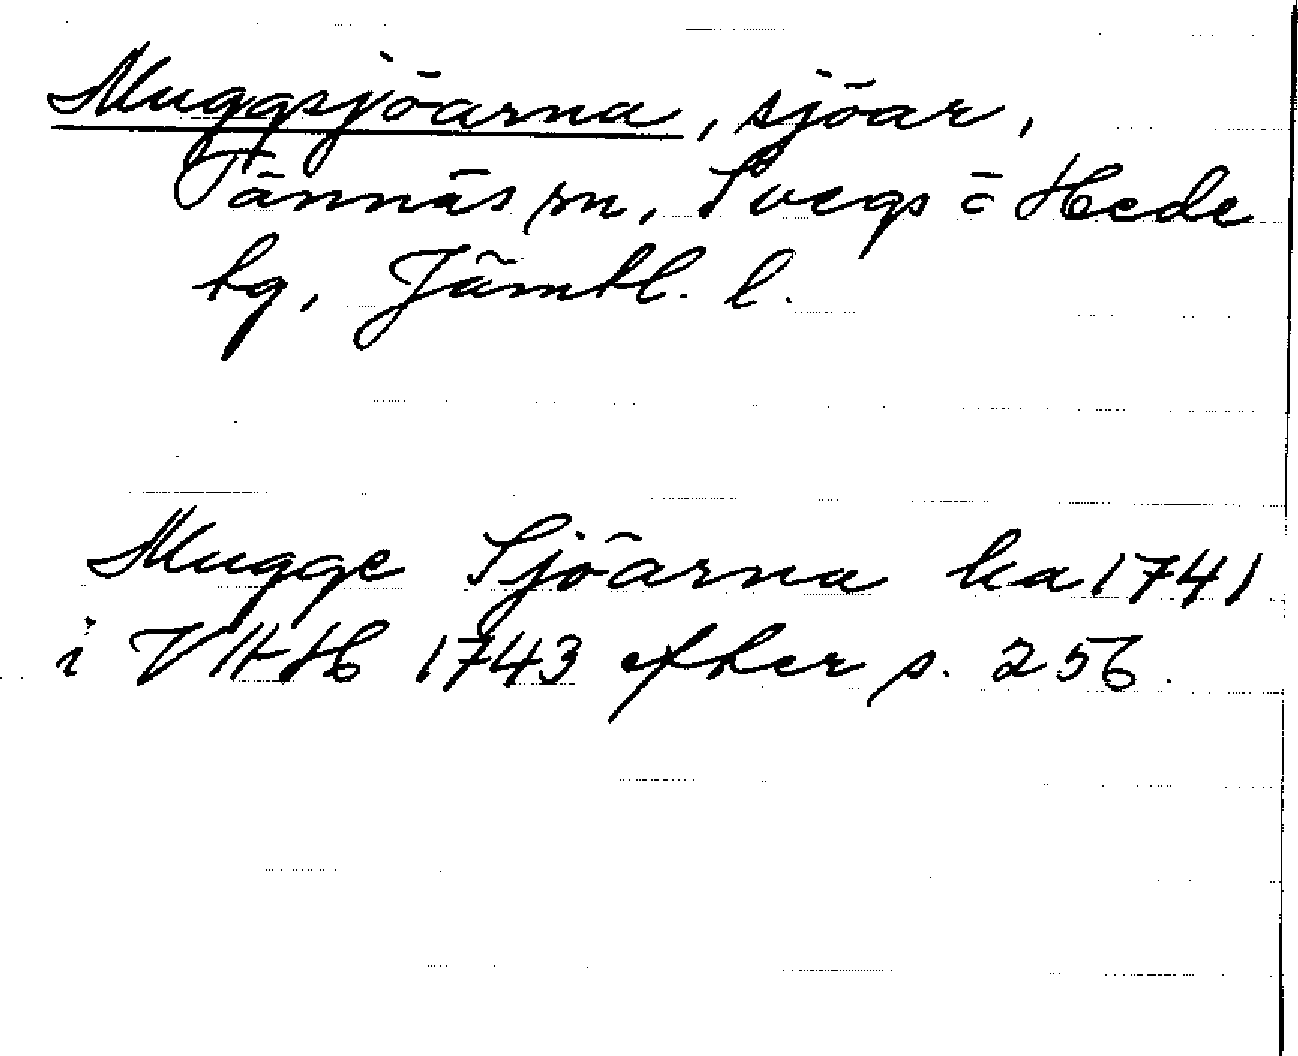 Muggsjöarna, sjöar,
Tännäs sn, Svegs o Hede
tg, Jämtl. l.
Mugge Sjöarna ka 1741
i VHAH 1743 efter s. 256.